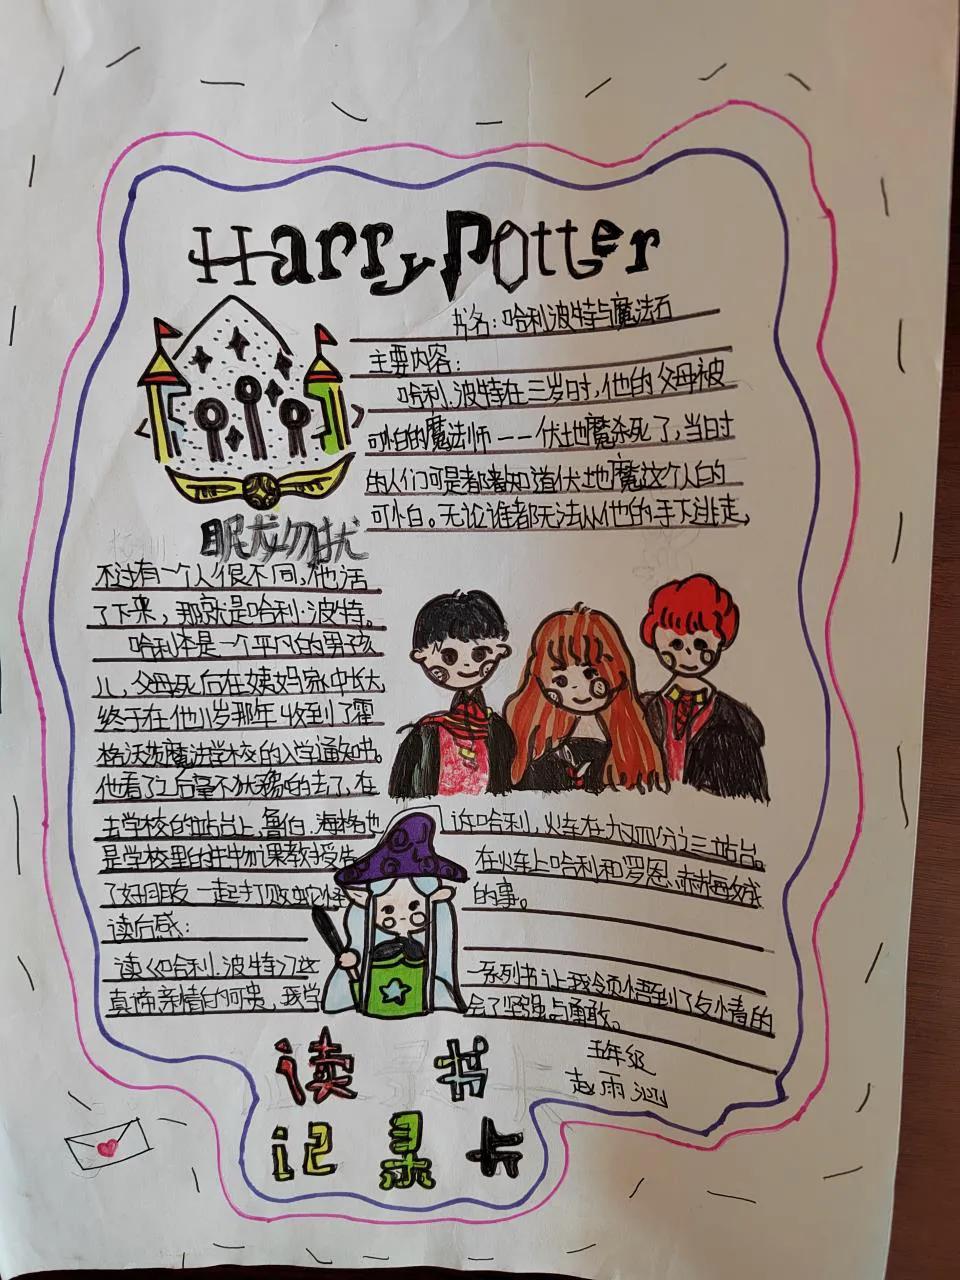 Harry Potter
书名：哈利波特与魔法石
主要内容：
哈利.波特在三岁时，他的父母被
可怕的魔法师——伏地魔杀死了，当时
的人们可是都知道伏地魔这个人的
可怕。无论谁都无法从他的手下逃走，
眠龙勿扰
不过有一个人很不同，他活
了下来，那就是哈利·波特。
哈利本是一个平凡的男孩
儿，父母死后在姨妈家中长大，
终于在他11岁那年收到了霍
格沃茨魔法学校的入学通知书。
他看了之后毫不犹豫的去了，在
去学校的站台上，鲁伯.海格也
诉哈利，火车在九又四分之三站台。
是学校里的生物课教授告
在火车上哈利和罗恩.赫梅成
了好朋友一起打败蛇怪
的事。
读后感：
读《哈利.波特》这
一系列书让我领悟到了友情的
真谛亲情的可贵，我学
会了坚强与勇敢。
五年级
赵雨
读书
记录卡